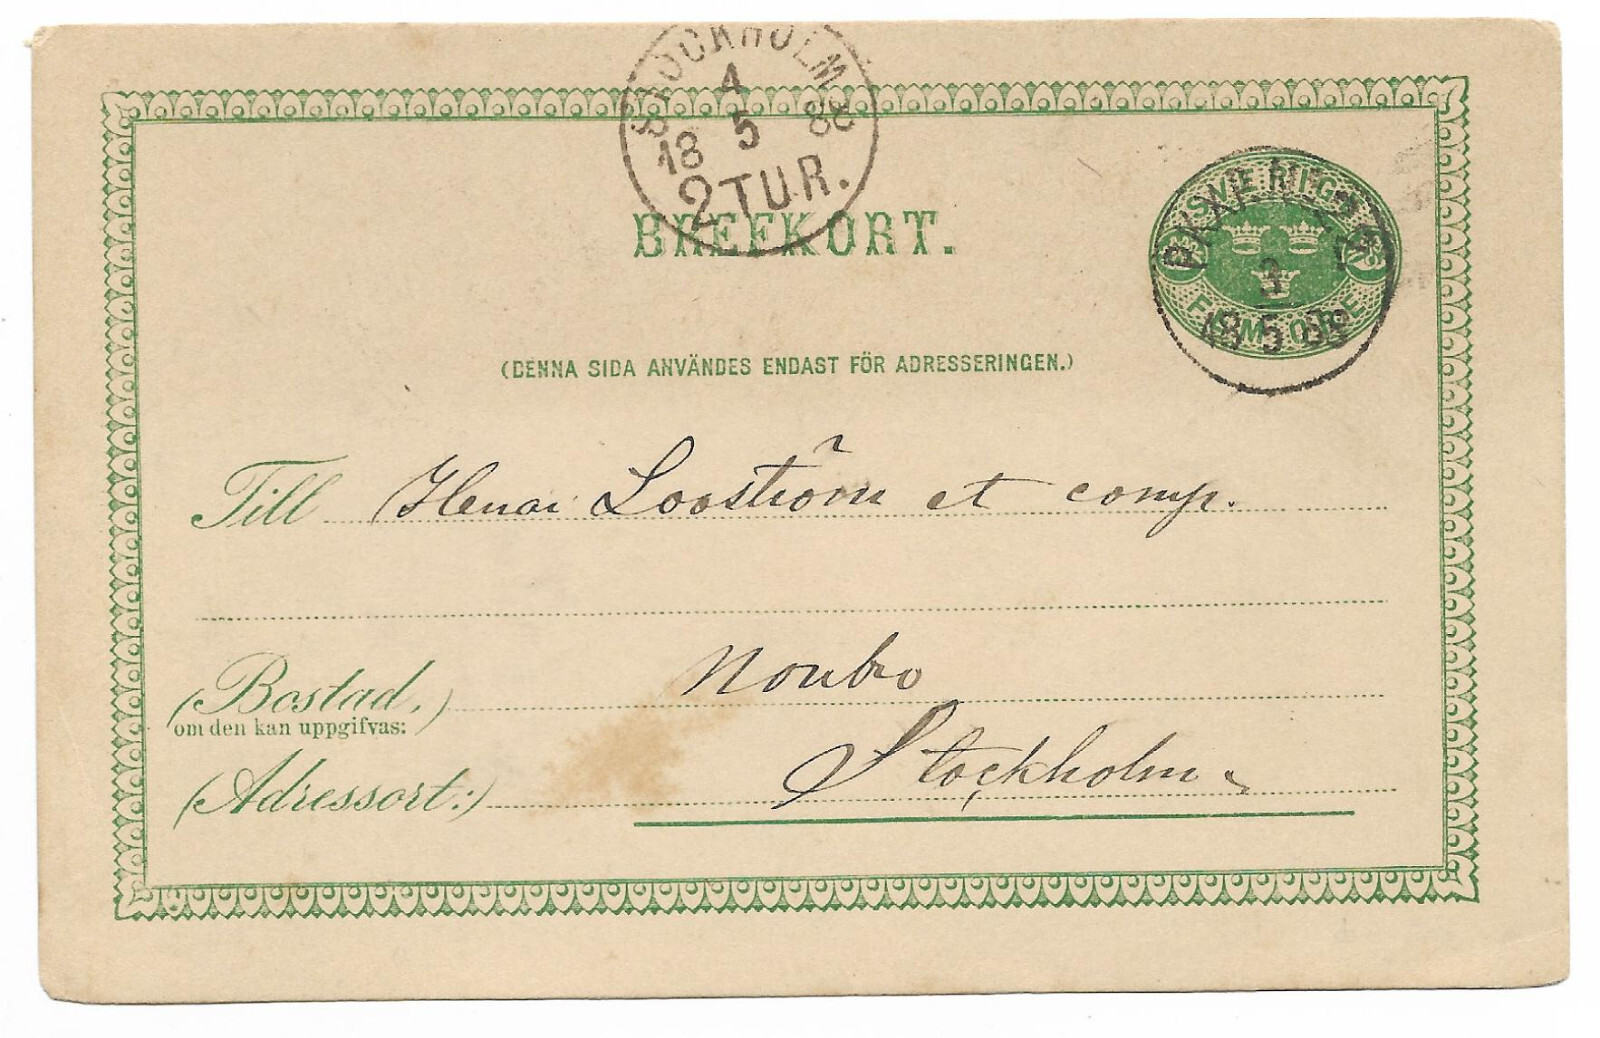 STOCKHOLM
4
18 5 88
2 TUR.
BREFKORT.
SVERIGE
FEM ÖRE
3
18 5 88
(DENNA SIDA ANVÄNDES ENDAST FÖR ADRESSERINGEN.)
Till Henri Looström et comp.
(Bostad,)
om den kan uppgifvas:
Norrbro
(Adressort:) Stockholm